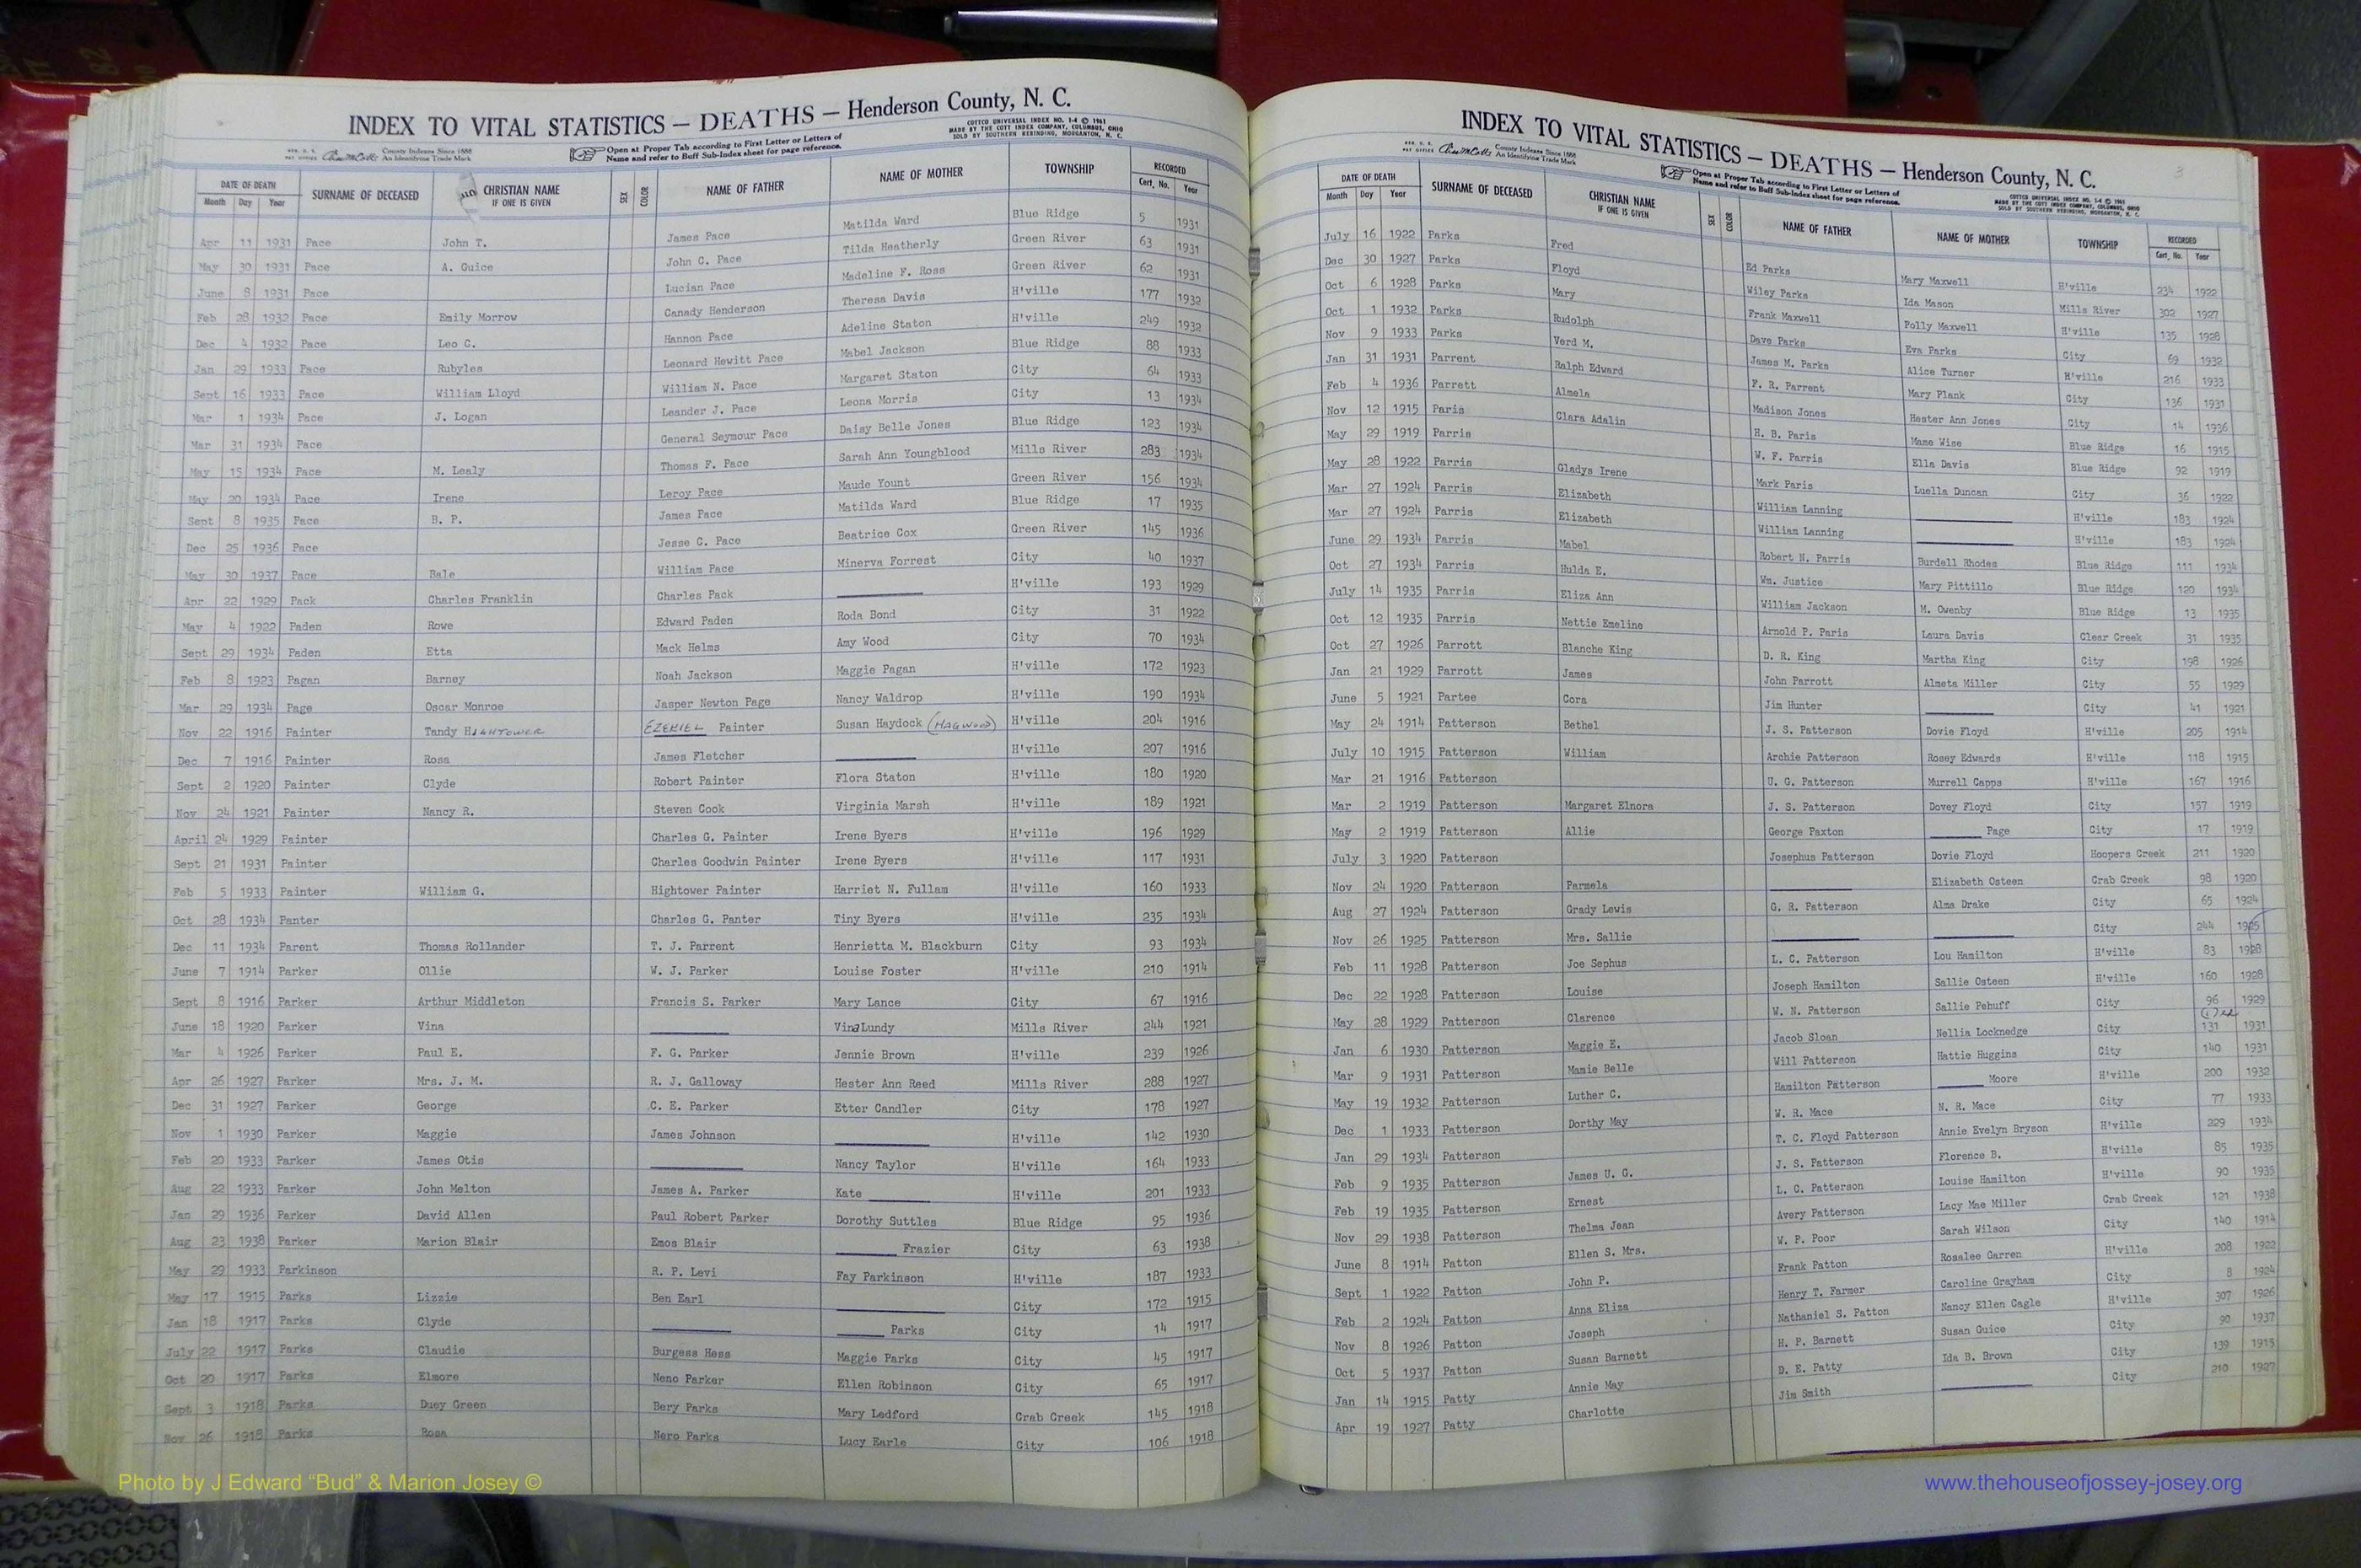 INDEX TO VITAL STATISTICS — DEATHS — Henderson County, N. C.
County Indexes Since 1888
An Identifying Trade Mark
Open at Proper Tab according to First Letter or Letters of
Name and refer to Buff Sub-Index sheet for page reference.
COTTCO UNIVERSAL INDEX NO. 1-4 © 1961
MADE BY THE COTT INDEX COMPANY, COLUMBUS, OHIO
SOLD BY SOUTHERN REBINDING, MORGANTON, N. C.
DATE OF DEATH Month Day Year SURNAME OF DECEASED CHRISTIAN NAME IF ONE IS GIVEN SEX COLOR NAME OF FATHER NAME OF MOTHER TOWNSHIP RECORDED Cert. No. Year
Apr 11 1931 Pace John T. James Pace Matilda Ward Blue Ridge 5 1931
May 30 1931 Pace A. Guice John C. Pace Tilda Heatherly Green River 63 1931
June 8 1931 Pace Lucian Pace Madeline F. Ross Green River 62 1931
Feb 28 1932 Pace Emily Morrow Canady Henderson Theresa Davis H'ville 177 1932
Dec 4 1932 Pace Leo C. Hannon Pace Adeline Staton H'ville 249 1932
Jan 29 1933 Pace Rubyles Leonard Hewitt Pace Mabel Jackson Blue Ridge 88 1933
Sept 16 1933 Pace William Lloyd William N. Pace Margaret Staton City 64 1933
Mar 1 1934 Pace J. Logan Leander J. Pace Leona Morris City 13 1934
Mar 31 1934 Pace General Seymour Pace Daisy Belle Jones Blue Ridge 123 1934
May 15 1934 Pace M. Lealy Thomas F. Pace Sarah Ann Youngblood Mills River 283 1934
May 20 1934 Pace Irene Leroy Pace Maude Yount Green River 156 1934
Sept 8 1935 Pace B. P. James Pace Matilda Ward Blue Ridge 17 1935
Dec 25 1936 Pace Jesse C. Pace Beatrice Cox Green River 145 1936
May 30 1937 Pace Bale William Pace Minerva Forrest City 40 1937
Apr 22 1929 Pack Charles Franklin Charles Pack H'ville 193 1929
May 4 1922 Paden Rowe Edward Paden Roda Bond City 31 1922
Sept 29 1934 Paden Etta Mack Helms Amy Wood City 70 1934
Feb 8 1923 Pagan Barney Noah Jackson Maggie Pagan H'ville 172 1923
Mar 29 1934 Page Oscar Monroe Jasper Newton Page Nancy Waldrop H'ville 190 1934
Nov 22 1916 Painter Tandy HIGHTOWER EZEKIEL Painter Susan Haydock (HAGWOOD) H'ville 204 1916
Dec 7 1916 Painter Rosa James Fletcher H'ville 207 1916
Sept 2 1920 Painter Clyde Robert Painter Flora Staton H'ville 180 1920
Nov 24 1921 Painter Nancy R. Steven Cook Virginia Marsh H'ville 189 1921
April 24 1929 Painter Charles G. Painter Irene Byers H'ville 196 1929
Sept 21 1931 Painter Charles Goodwin Painter Irene Byers H'ville 117 1931
Feb 5 1933 Painter William G. Hightower Painter Harriet N. Fullam H'ville 160 1933
Oct 28 1934 Panter Charles G. Panter Tiny Byers H'ville 235 1934
Dec 11 1934 Parent Thomas Rollander T. J. Parrent Henrietta M. Blackburn City 93 1934
June 7 1914 Parker Ollie W. J. Parker Louise Foster H'ville 210 1914
Sept 8 1916 Parker Arthur Middleton Francis S. Parker Mary Lance City 67 1916
June 18 1920 Parker Vina Vina Lundy Mills River 244 1921
Mar 4 1926 Parker Paul E. F. G. Parker Jennie Brown H'ville 239 1926
Apr 26 1927 Parker Mrs. J. M. R. J. Galloway Hester Ann Reed Mills River 288 1927
Dec 31 1927 Parker George C. E. Parker Etter Candler City 178 1927
Nov 1 1930 Parker Maggie James Johnson H'ville 142 1930
Feb 20 1933 Parker James Otis Nancy Taylor H'ville 164 1933
Aug 22 1933 Parker John Melton James A. Parker Kate H'ville 201 1933
Jan 29 1936 Parker David Allen Paul Robert Parker Dorothy Suttles Blue Ridge 95 1936
Aug 23 1938 Parker Marion Blair Emos Blair Frazier City 63 1938
May 29 1933 Parkinson R. P. Levi Fay Parkinson H'ville 187 1933
May 17 1915 Parks Lizzie Ben Earl City 172 1915
Jan 18 1917 Parks Clyde Parks City 14 1917
July 22 1917 Parks Claudie Burgess Hess Maggie Parks City 45 1917
Oct 20 1917 Parks Elmore Neno Parker Ellen Robinson City 65 1917
Sept 3 1918 Parks Duey Green Bery Parks Mary Ledford Crab Creek 145 1918
Nov 26 1918 Parks Rosa Nero Parks Lucy Earle City 106 1918
INDEX TO VITAL STATISTICS — DEATHS — Henderson County, N. C.
3
County Indexes Since 1888
An Identifying Trade Mark
Open at Proper Tab according to First Letter or Letters of
Name and refer to Buff Sub-Index sheet for page reference.
COTTCO UNIVERSAL INDEX NO. 1-4 © 1961
MADE BY THE COTT INDEX COMPANY, COLUMBUS, OHIO
SOLD BY SOUTHERN REBINDING, MORGANTON, N. C.
DATE OF DEATH Month Day Year SURNAME OF DECEASED CHRISTIAN NAME IF ONE IS GIVEN SEX COLOR NAME OF FATHER NAME OF MOTHER TOWNSHIP RECORDED Cert. No. Year
July 16 1922 Parks Fred Ed Parks Mary Maxwell H'ville 234 1922
Dec 30 1927 Parks Floyd Wiley Parks Ida Mason Mills River 302 1927
Oct 6 1928 Parks Mary Frank Maxwell Polly Maxwell H'ville 135 1928
Oct 1 1932 Parks Rudolph Dave Parks Eva Parks City 69 1932
Nov 9 1933 Parks Verd M. James M. Parks Alice Turner H'ville 216 1933
Jan 31 1931 Parrent Ralph Edward F. R. Parrent Mary Plank City 136 1931
Feb 4 1936 Parrett Almela Madison Jones Hester Ann Jones City 14 1936
Nov 12 1915 Paris Clara Adalin H. B. Paris Mame Wise Blue Ridge 16 1915
May 29 1919 Parris W. F. Parris Ella Davis Blue Ridge 92 1919
May 28 1922 Parris Gladys Irene Mark Paris Luella Duncan City 36 1922
Mar 27 1924 Parris Elizabeth William Lanning H'ville 183 1924
Mar 27 1924 Parris Elizabeth William Lanning H'ville 183 1924
June 29 1934 Parris Mabel Robert N. Parris Burdell Rhodes Blue Ridge 111 1934
Oct 27 1934 Parris Hulda E. Wm. Justice Mary Pittillo Blue Ridge 120 1934
July 14 1935 Parris Eliza Ann William Jackson M. Owenby Blue Ridge 13 1935
Oct 12 1935 Parris Nettie Emeline Arnold P. Paris Laura Davis Clear Creek 31 1935
Oct 27 1926 Parrott Blanche King D. R. King Martha King City 198 1926
Jan 21 1929 Parrott James John Parrott Almeta Miller City 55 1929
June 5 1921 Partee Cora Jim Hunter City 41 1921
May 24 1914 Patterson Bethel J. S. Patterson Dovie Floyd H'ville 205 1914
July 10 1915 Patterson William Archie Patterson Rosey Edwards H'ville 118 1915
Mar 21 1916 Patterson U. G. Patterson Murrell Capps H'ville 167 1916
Mar 2 1919 Patterson Margaret Elnora J. S. Patterson Dovey Floyd City 157 1919
May 2 1919 Patterson Allie George Paxton Page City 17 1919
July 3 1920 Patterson Josephus Patterson Dovie Floyd Hoopers Creek 211 1920
Nov 24 1920 Patterson Parmela Elizabeth Osteen Crab Creek 98 1920
Aug 27 1924 Patterson Grady Lewis G. R. Patterson Alma Drake City 65 1924
Nov 26 1925 Patterson Mrs. Sallie City 244 1925
Feb 11 1928 Patterson Joe Sephus L. C. Patterson Lou Hamilton H'ville 83 1928
Dec 22 1928 Patterson Louise Joseph Hamilton Sallie Osteen H'ville 160 1928
May 28 1929 Patterson Clarence W. N. Patterson Sallie Pehuff City 96 1929
Jan 6 1930 Patterson Maggie E. Jacob Sloan Nellia Locknedge City 131 1931
Mar 9 1931 Patterson Mamie Belle Will Patterson Hattie Huggins City 140 1931
May 19 1932 Patterson Luther C. Hamilton Patterson Moore H'ville 200 1932
Dec 1 1933 Patterson Dorthy May W. R. Mace N. R. Mace City 77 1933
Jan 29 1934 Patterson T. C. Floyd Patterson Annie Evelyn Bryson H'ville 229 1934
Feb 9 1935 Patterson James U. G. J. S. Patterson Florence B. H'ville 85 1935
Feb 19 1935 Patterson Ernest L. C. Patterson Louise Hamilton H'ville 90 1935
Nov 29 1938 Patterson Thelma Jean Avery Patterson Lacy Mae Miller Crab Creek 121 1938
June 8 1914 Patton Ellen S. Mrs. W. P. Poor Sarah Wilson City 140 1914
Sept 1 1922 Patton John P. Frank Patton Rosalee Garren H'ville 208 1922
Feb 2 1924 Patton Anna Eliza Henry T. Farmer Caroline Grayham City 8 1924
Nov 8 1926 Patton Joseph Nathaniel S. Patton Nancy Ellen Cagle H'ville 307 1926
Oct 5 1937 Patton Susan Barnett H. P. Barnett Susan Guice City 90 1937
Jan 14 1915 Patty Annie May D. E. Patty Ida B. Brown City 139 1915
Apr 19 1927 Patty Charlotte Jim Smith City 210 1927
Photo by J Edward “Bud” & Marion Josey ©
www.thehouseofjossey-josey.org